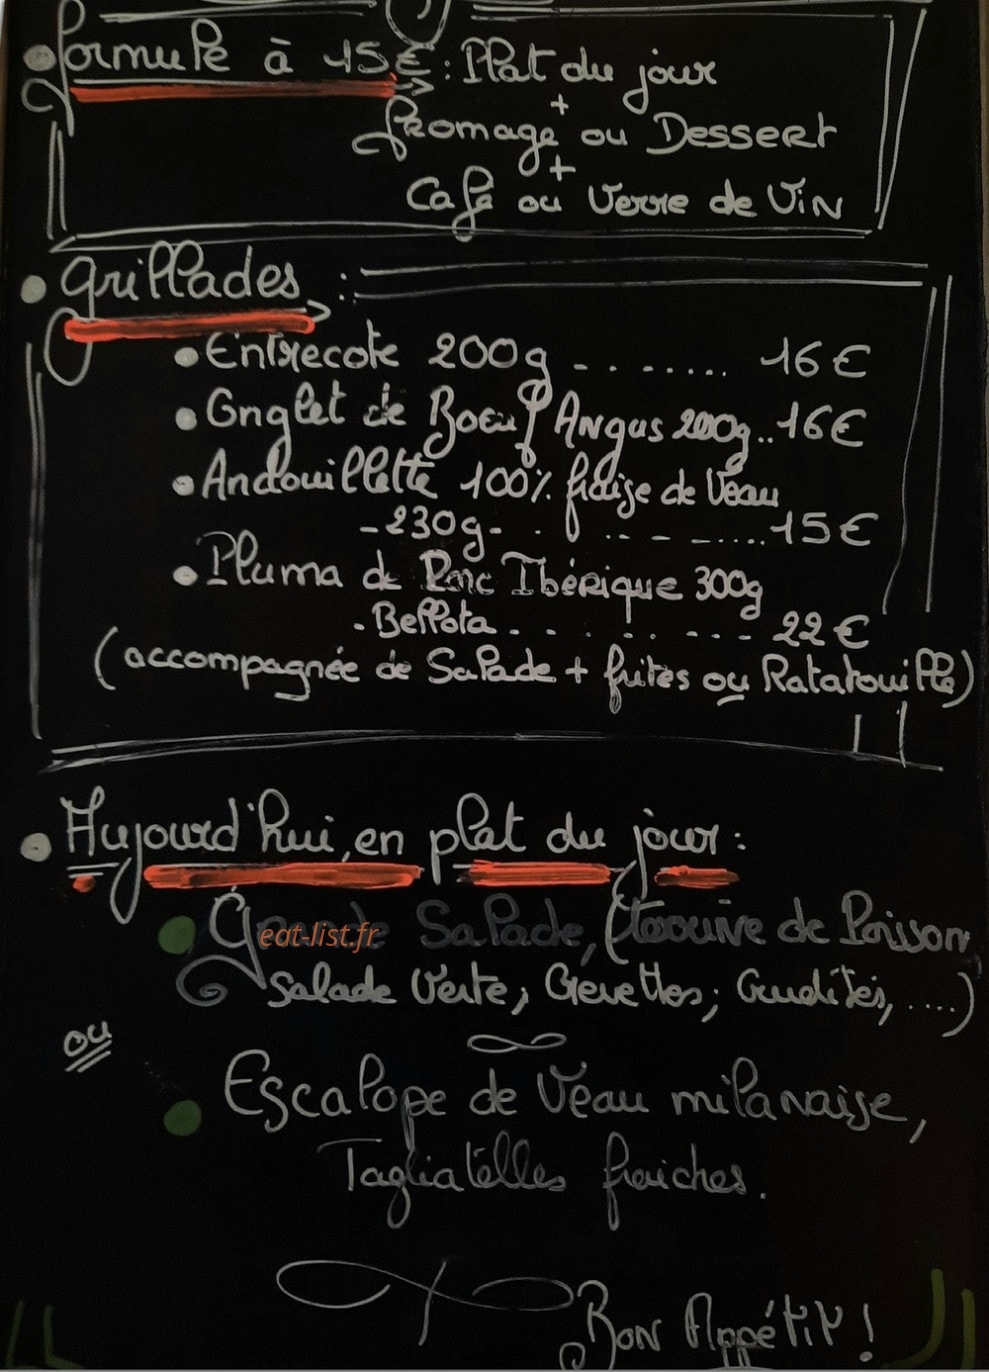 Formule à 15€ : Plat du jour
+
fromage ou Dessert
+
Café ou Verre de Vin
Grillades :
Entrecote 200g ........ 16€
Onglet de Boeuf Angus 200g..16€
Andouillette 100% fraise de Veau
-230g- ........ 15€
Pluma de Porc Ibérique 300g
- Bellota ........ 22€
(accompagnée de Salade + frites ou Ratatouille)
Aujourd'hui, en plat du jour :
Grande Salade, (Terrine de Poisson,
eat-list.fr
Salade Verte, Crevettes, Crudités, ....)
ou
Escalope de Veau milanaise,
Tagliatelles fraiches.
Bon Appétit !